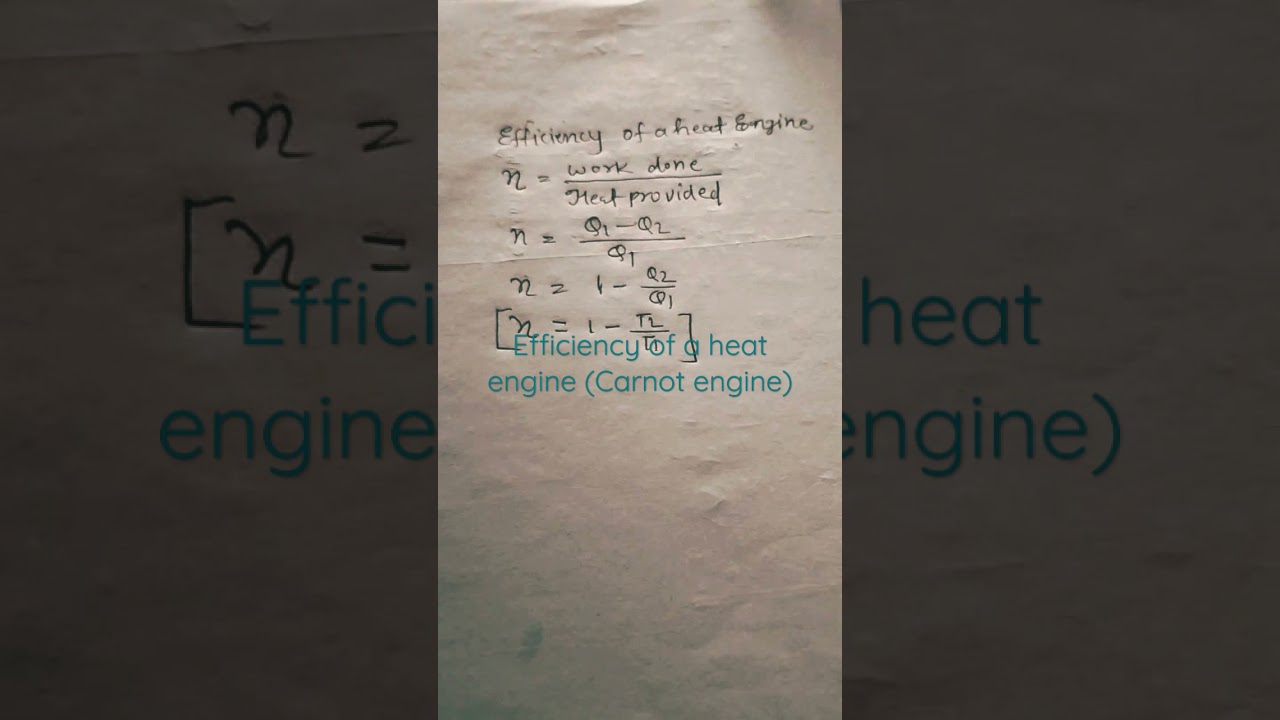 Efficiency of a heat Engine
η = work done / Heat provided
η = Q1 - Q2 / Q1
η = 1 - Q2 / Q1
[η = 1 - T2 / T1]
Efficiency of a heat
engine (Carnot engine)
η =
[η =
Effici heat
engine engine)